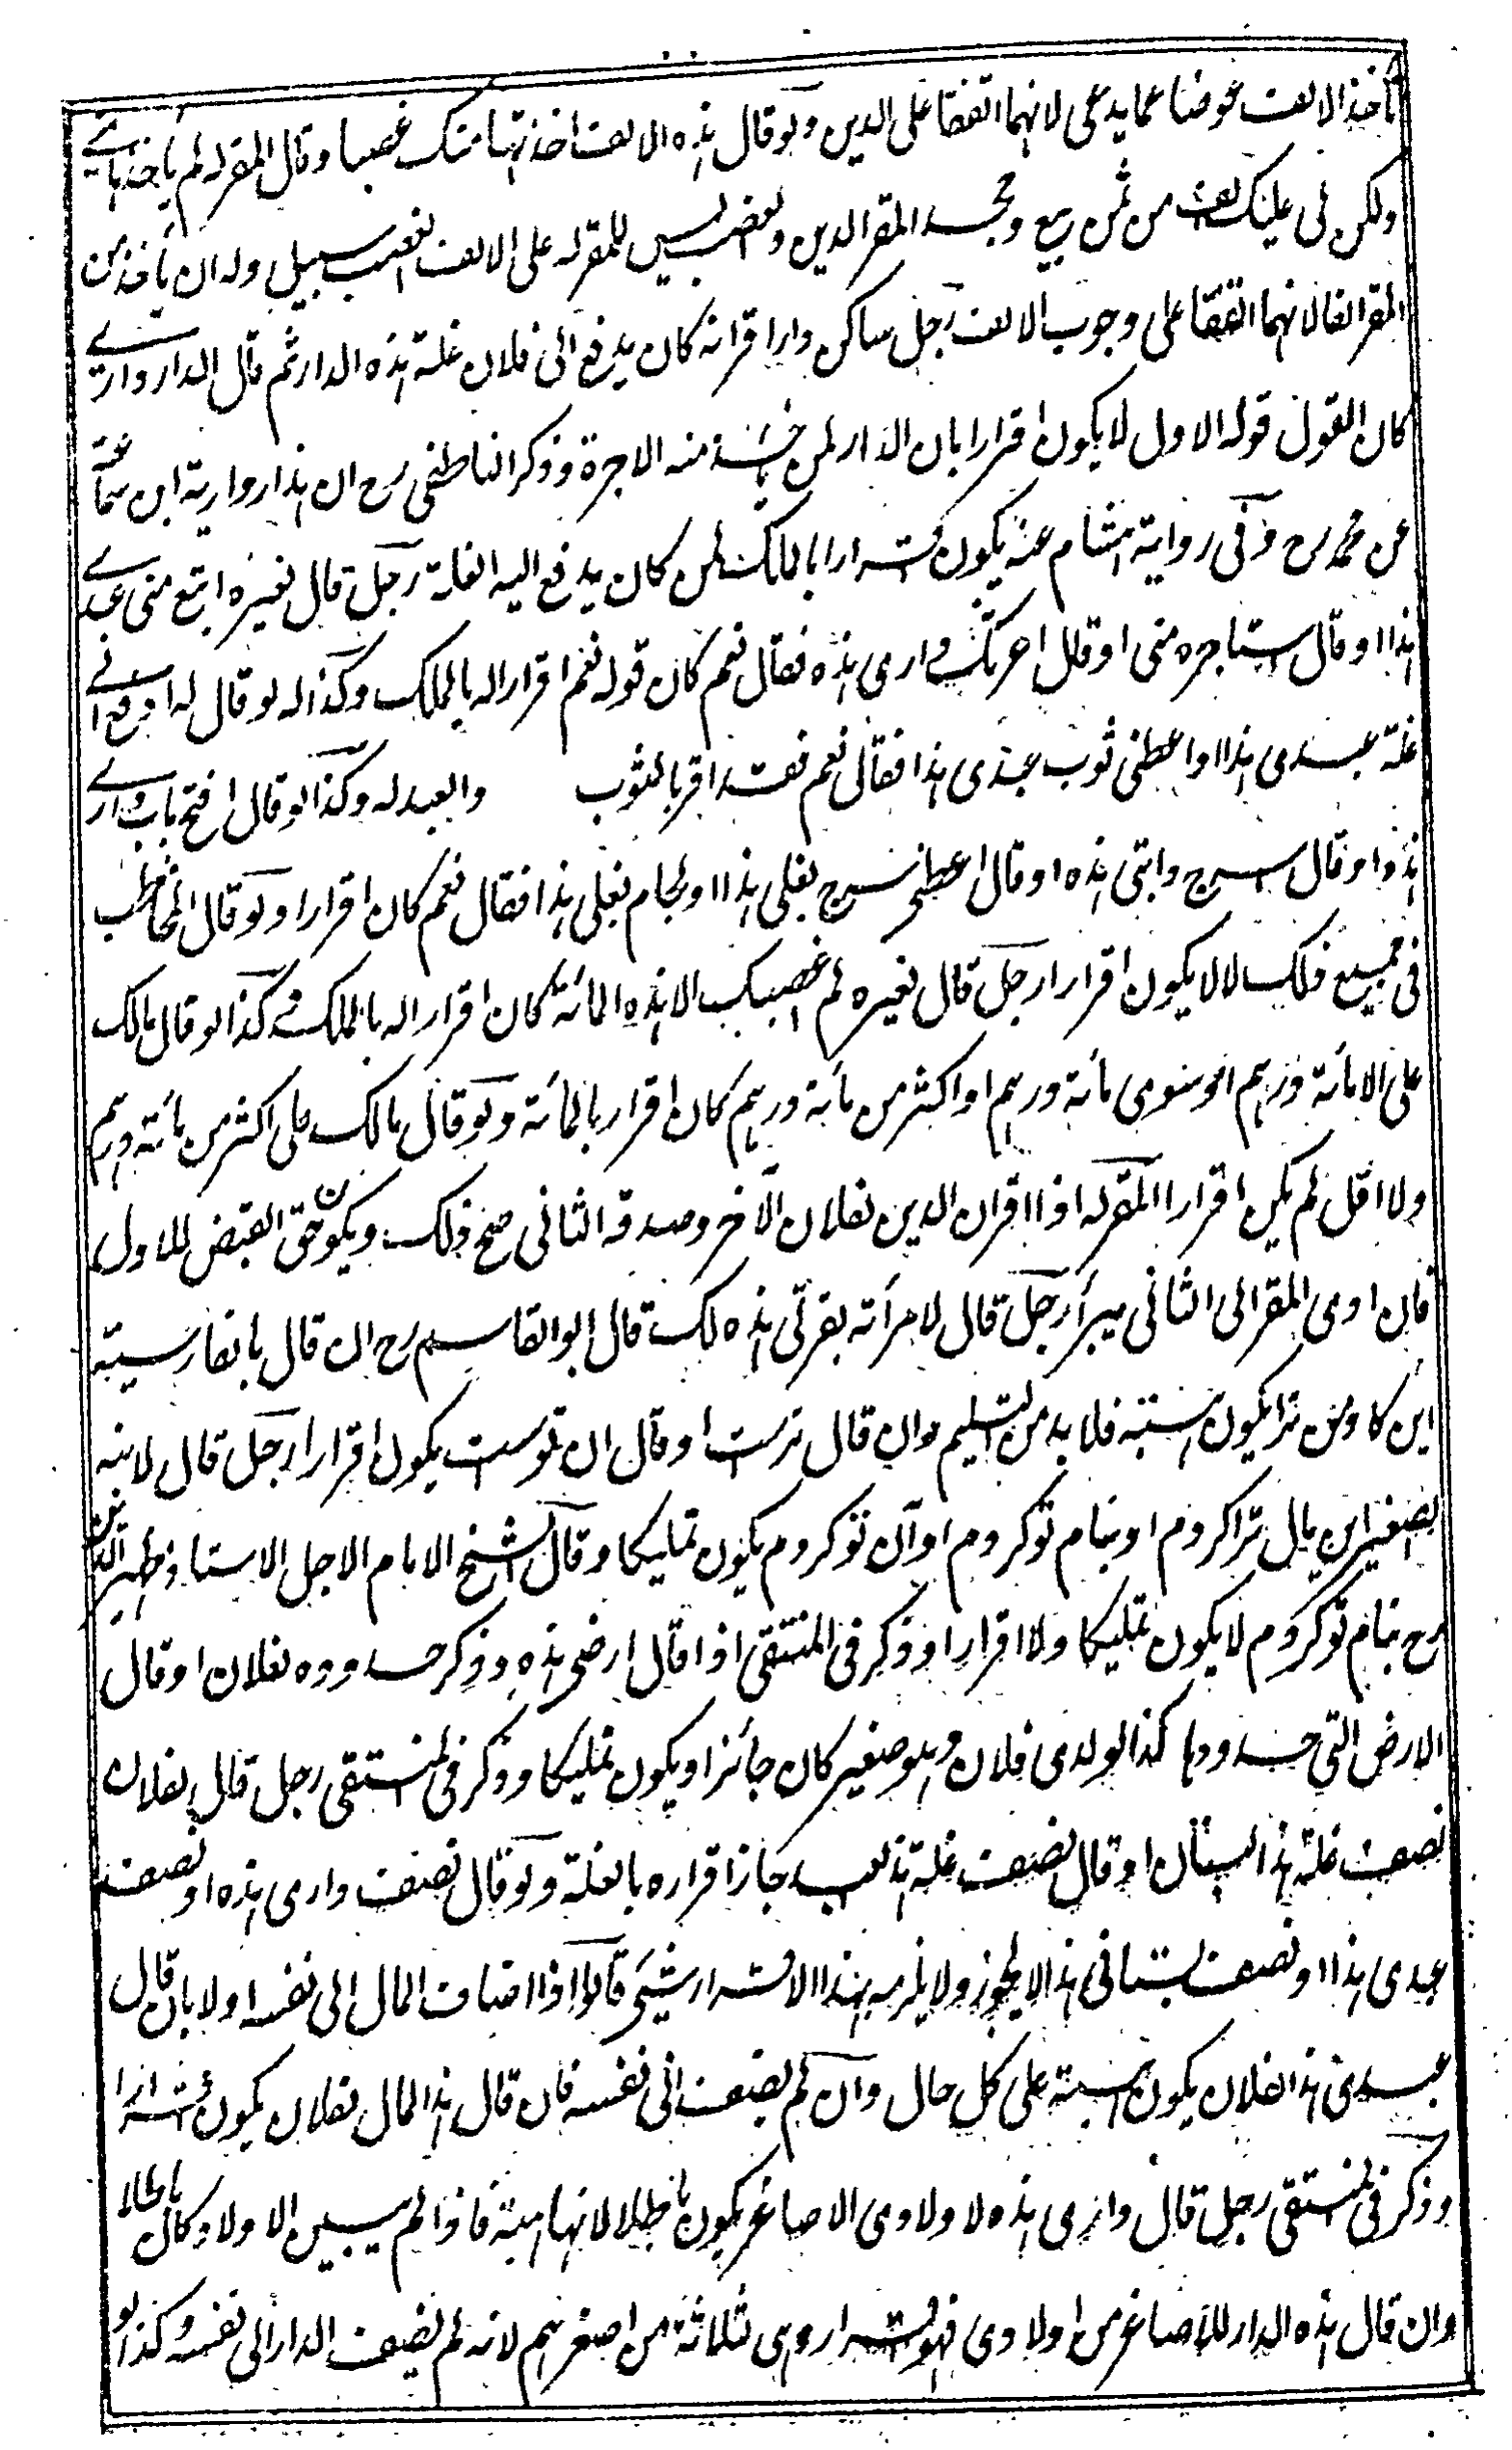 يأخذ الالف عوضا عما يدعى لانهما اتفقا على الدين ولو قال هذه الالف اخذتها منك غصبا وقال المقر له لم يأخذها منى
ولكن لى عليك الف من ثمن بيع وجحد المقر الدين والغصب ليس للمقر له على الالف الغصب سبيل وله ان يأخذ من
المقر الفا لانهما اتفقا على وجوب الالف رجل ساكن دارا اقر انه كان يدفع الى فلان غلة هذه الدار ثم قال الدار دارى
كان القول قوله الاول لا يكون اقرارا بان الدار لمن يأخذ منه الاجرة وذكر الناطفى رح ان هذا رواية ابن سماعة
عن محمد رح وفى رواية هشام عنه يكون اقرارا بالملك لمن كان يدفع اليه الغلة رجل قال لغيره ابتع منى عبدى
هذا او قال استاجره منى او قال اجرتك دارى هذه فقال نعم كان قوله نعم اقرارا له بالملك وكذا له لو قال له ادفع الى
غلة عبدى هذا او اعطنى ثوب عبدى هذا فقال نعم فقد اقر بالثوب والعبد له وكذا لو قال افتح باب دارى
هذه او قال اسرج دابتى هذه او قال اعطنى سرج بغلى هذا او لجام بغلى هذا فقال نعم كان اقرارا ولو قال المخاطب
فى جميع ذلك لا لا يكون اقرارا رجل قال لغيره لم اغصبك الا هذه المائة كان اقرارا له بالملك وكذا لو قال مالك
على الا مائة درهم او سوى مائة درهم او اكثر من مائة درهم كان اقرار بالمائة ولو قال مالك على اكثر من مائة درهم
ولا اقل لم يكن اقرارا المقر له اذا اقر ان الدين لفلان الآخر وصدقه الثانى صح ذلك ويكون حق القبض للاول
فان ادى المقر الى الثانى يبرأ رجل قال لامرأته بقرتى هذه لك قال ابو القاسم رح ان قال بالفارسية
اين كاو من ترا يكون هبة فلا بد من التسليم وان قال تراست او قال ان تو ست يكون اقرارا رجل قال لابنه
الصغير اين مال ترا كردم او بنام تو كردم او آن تو كردم يكون تمليكا وقال الشيخ الامام الاجل الاستاذ ظهير الدين
رح بنام تو كردم لا يكون تمليكا ولا اقرارا وذكر فى المنتقى اذا قال ارضى هذه وذكر حدوده لفلان او قال
الارض التى حدودها كذا لولدى فلان وهو صغير كان جائزا ويكون تمليكا وذكر فى المنتقى رجل قال لفلان
نصف غلة هذا البستان او قال نصف غلة هذا العبد جاز اقراره بالغلة ولو قال نصف دارى هذه او نصف
عبدى هذا او نصف بستانى هذا لا يجوز ولا يلزمه بهذا الاقرار شيئ قالوا اذا اضاف المال الى نفسه اولا بان قال
عبدى هذا لفلان يكون هبة على كل حال وان لم يضف الى نفسه فان قال هذا المال لفلان يكون اقرارا
وذكر فى المنتقى رجل قال دارى هذه لاولادى الاصاغر يكون باطلا لانها هبة فاذا لم يبين الاولاد كان باطلا
وان قال هذه الدار للاصاغر من اولادى فهو اقرار وهى لثلاثة من اصغرهم لانه لم يضف الدار الى نفسه وكذا لو